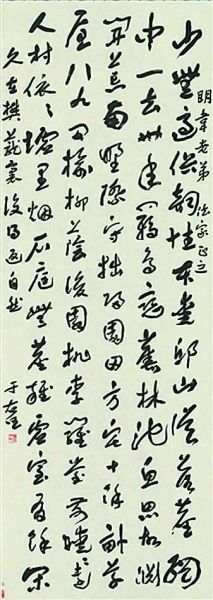 明韋老弟 法家正之
少無適俗韻性本愛邱山誤落塵網
中一去卅年羈鳥戀舊林池魚思故淵
開荒南野際守拙歸園田方宅十餘畝草
屋八九間榆柳蔭後園桃李羅堂前曖〻遠
人村依〻墟里烟戶庭無塵雜虛室有餘閑
久在樊蘢裏復得返自然
于右任